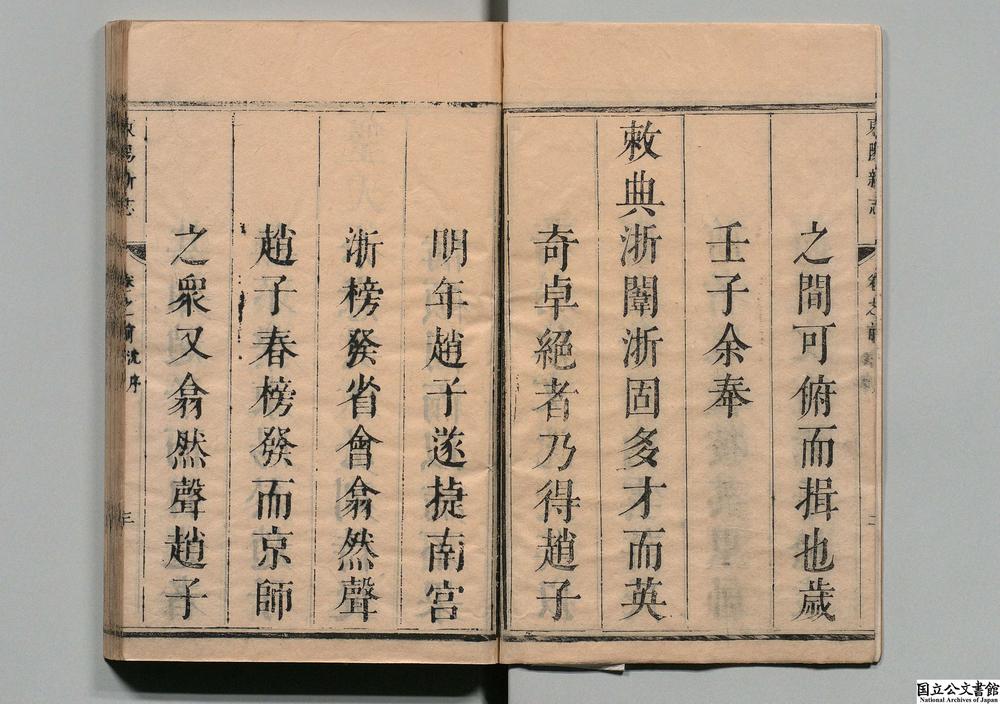 東陽新志
卷之前
之間可俯而揖也歲
壬子余奉
敕典浙闈浙固多才而英
奇卓絕者乃得趙子
明年趙子遂㨗南宮
浙榜發省會翕然聲
趙子春榜發而京師
之眾又翕然聲趙子
東陽新志
卷之前 沈序
三
国立公文書館
National Archives of Japan